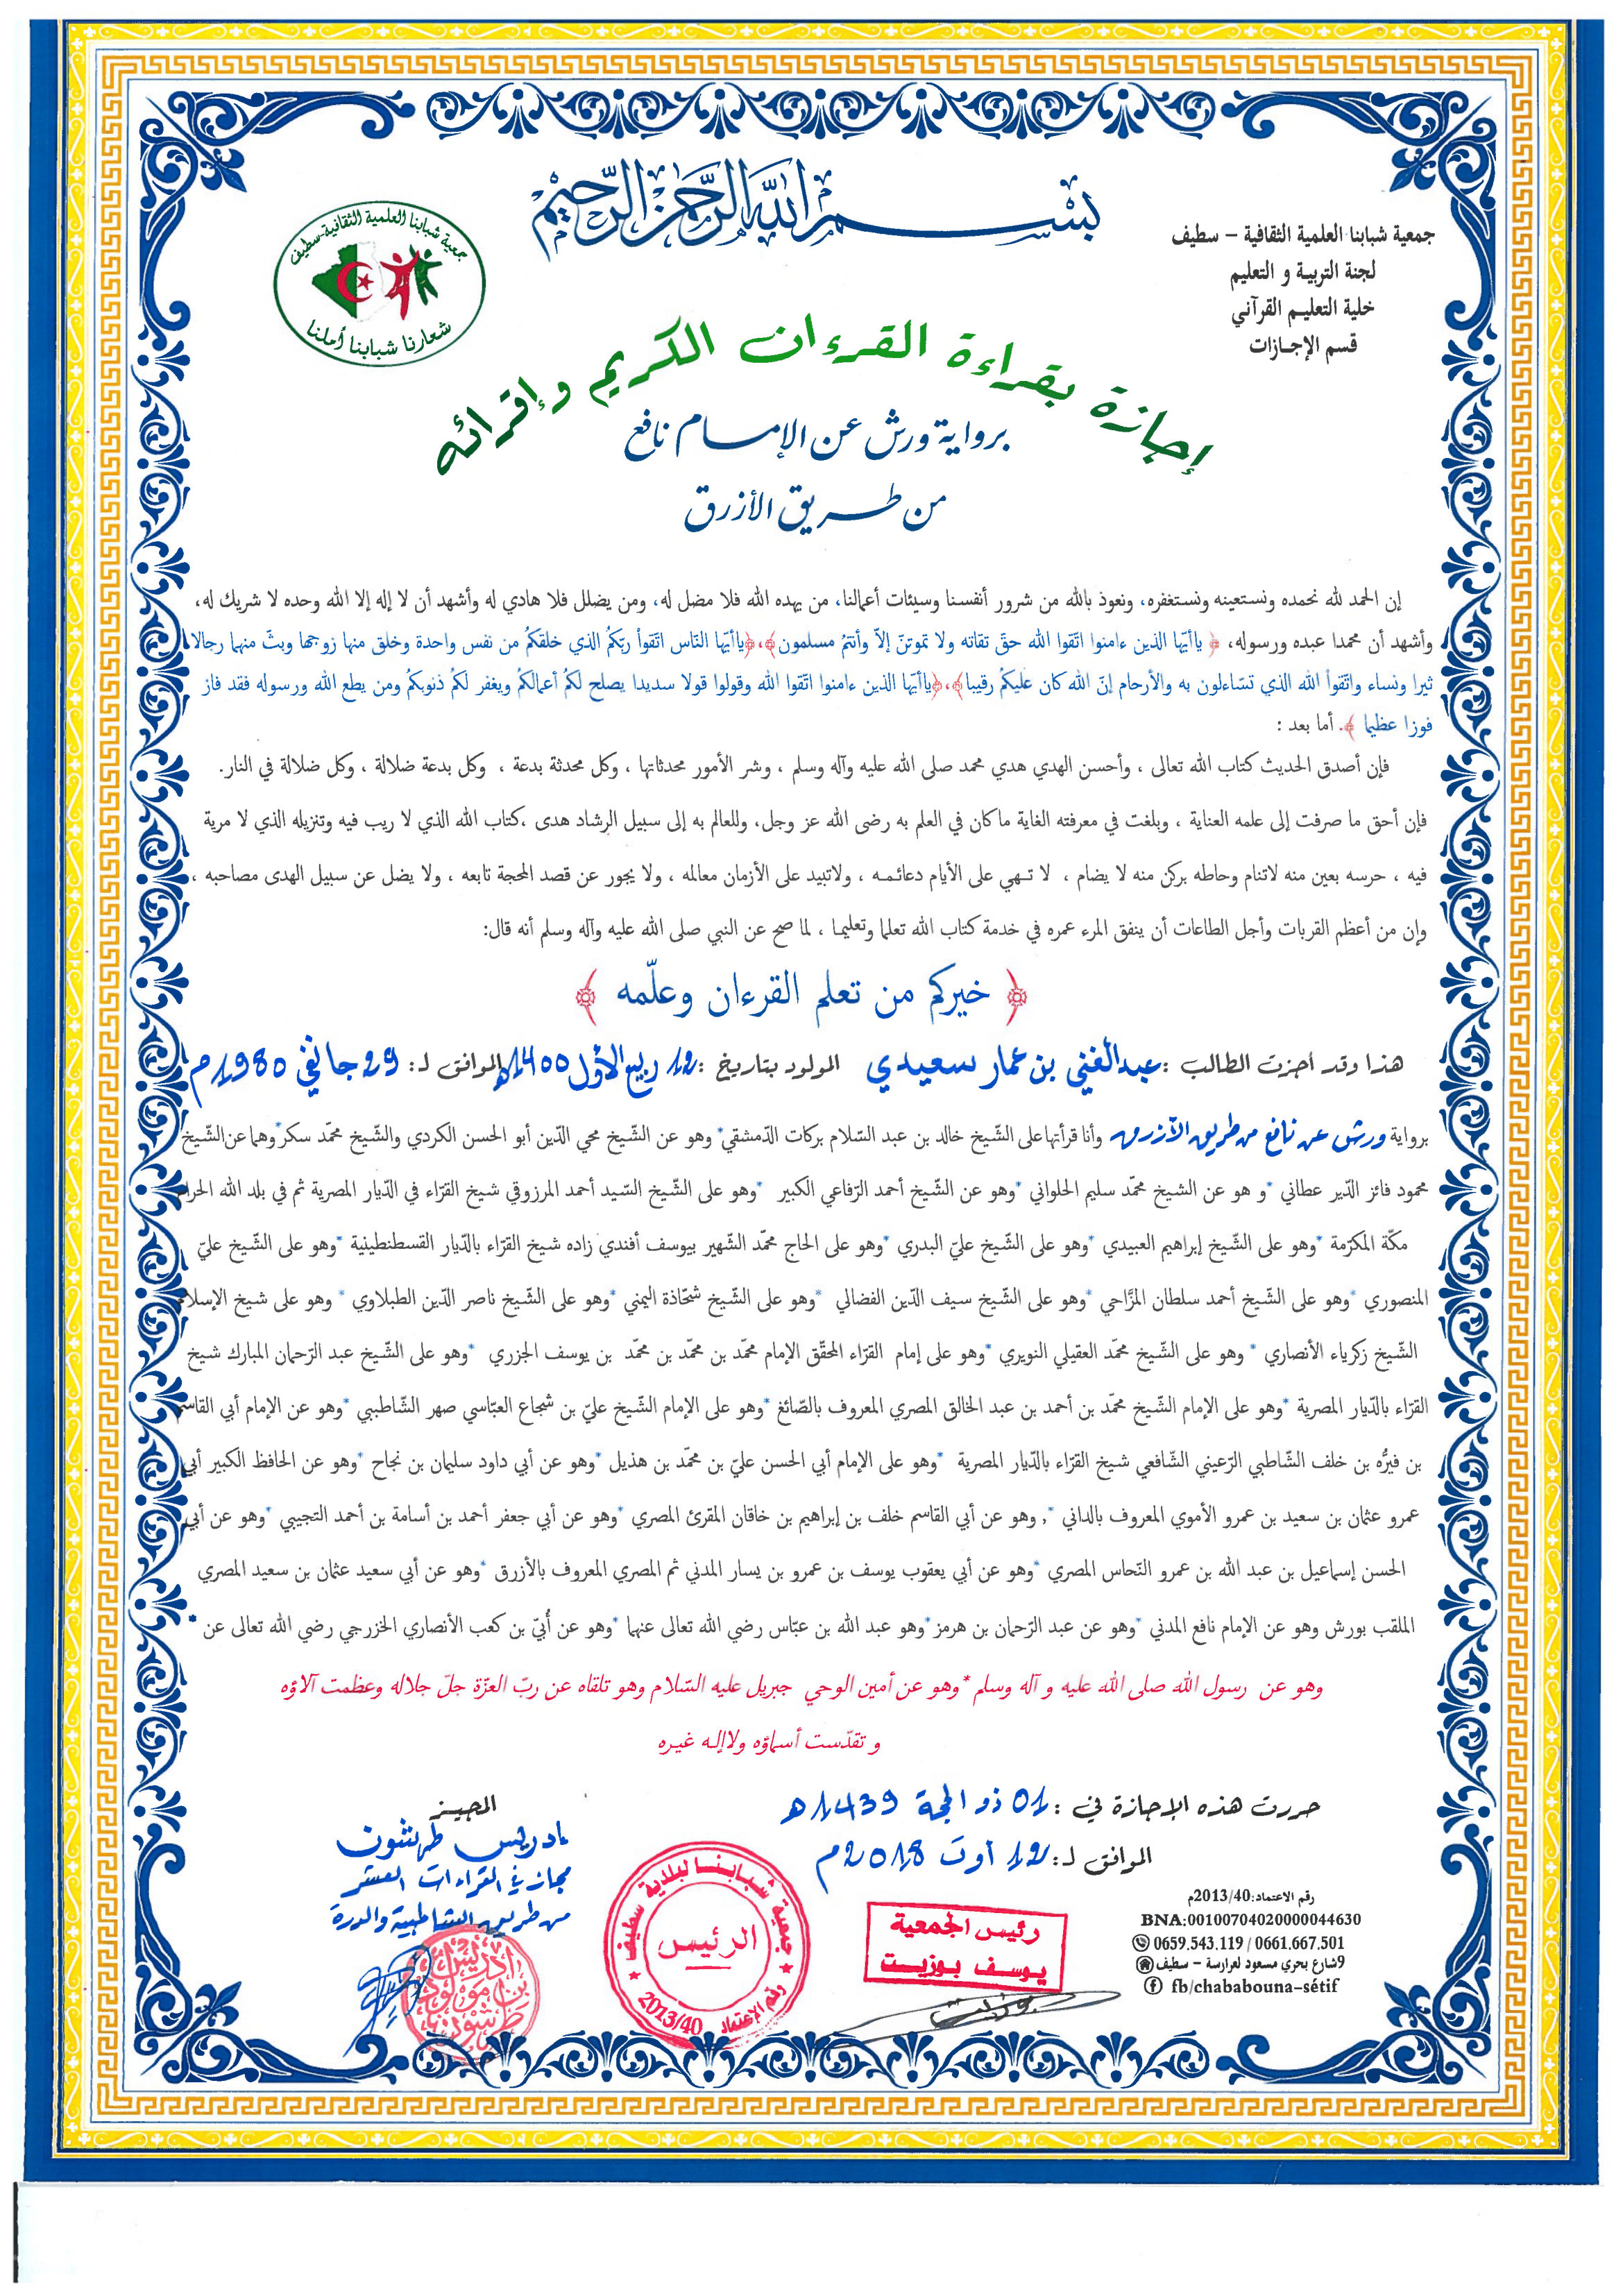 بسم الله الرحمن الرحيم
جمعية شبابنا العلمية الثقافية - سطيف
لجنة التربية و التعليم
خلية التعليم القرآني
قسم الإجازات
جمعية شبابنا العلمية الثقافية-سطيف
شعارنا شبابنا أملنا
إجازة بقراءة القرءان الكريم وإقرائه
برواية ورش عن الإمام نافع
من طريق الأزرق
إن الحمد لله نحمده ونستعينه ونستغفره، ونعوذ بالله من شرور أنفسنا وسيئات أعمالنا، من يهده الله فلا مضل له، ومن يضلل فلا هادي له وأشهد أن لا إله إلا الله وحده لا شريك له،
وأشهد أن محمدا عبده ورسوله، ﴿ ياأيّها الذين ءامنوا اتّقوا الله حقّ تقاته ولا تموتنّ إلاّ وأنتمُ مسلمون﴾،﴿ياأيّها النّاس اتّقواْ ربّكمُ الذي خلقكمُ من نفس واحدة وخلق منها زوجها وبثّ منهما رجالا
ثيرا ونساء واتّقواْ الله الذي تسّاءلون به والأرحام إنّ الله كان عليكمُ رقيبا﴾،﴿ياأيّها الذين ءامنوا اتّقوا الله وقولوا قولا سديدا يصلح لكمُ أعمالكمُ ويغفر لكمُ ذنوبكمُ ومن يطع الله ورسوله فقد فاز
فوزا عظيما ﴾. أما بعد :
فإن أصدق الحديث كتاب الله تعالى ، وأحسن الهدي هدي محمد صلى الله عليه وآله وسلم ، وشر الأمور محدثاتها ، وكل محدثة بدعة ، وكل بدعة ضلالة ، وكل ضلالة في النار.
فإن أحق ما صرفت إلى علمه العناية ، وبلغت في معرفته الغاية ماكان في العلم به رضى الله عز وجل، وللعالم به إلى سبيل الرشاد هدى ،كتاب الله الذي لا ريب فيه وتنزيله الذي لا مرية
فيه ، حرسه بعين منه لاتنام وحاطه بركن منه لا يضام ، لا تهي على الأيام دعائمه ، ولاتبيد على الأزمان معالمه ، ولا يجور عن قصد المحجة تابعه ، ولا يضل عن سبيل الهدى مصاحبه ،
وإن من أعظم القربات وأجل الطاعات أن ينفق المرء عمره في خدمة كتاب الله تعلما وتعليما ، لما صح عن النبي صلى الله عليه وآله وسلم أنه قال:
﴿ خيركم من تعلم القرءان وعلّمه ﴾
هذا وقد أجزت الطالب :عبدالغني بن عمار سعيدي المولود بتاريخ :12 ربيع الأول 1400ه الموافق لـ: 29 جانفي 1980م
برواية ورش عن نافع من طريق الأزرق وأنا قرأتها على الشّيخ خالد بن عبد السّلام بركات الدّمشقي* وهو عن الشّيخ محي الدّين أبو الحسن الكردي والشّيخ محمّد سكر*وهما عن الشّيخ
محمود فائز الدّير عطاني *و هو عن الشيخ محمّد سليم الحلواني *وهو عن الشّيخ أحمد الرّفاعي الكبير *وهو على الشّيخ السّيد أحمد المرزوقي شيخ القرّاء في الدّيار المصرية ثم في بلد الله الحرام
مكّة المكرّمة *وهو على الشّيخ إبراهيم العبيدي *وهو على الشّيخ عليّ البدري *وهو على الحاج محمّد الشّهير بيوسف أفندي زاده شيخ القرّاء بالدّيار القسطنطينية *وهو على الشّيخ عليّ
المنصوري *وهو على الشّيخ أحمد سلطان المزّاحي *وهو على الشّيخ سيف الدّين الفضالي *وهو على الشّيخ شحّاذة اليمني *وهو على الشّيخ ناصر الدّين الطبلاوي * وهو على شيخ الإسلام
الشّيخ زكرياء الأنصاري * وهو على الشّيخ محمّد العقيلي النويري *وهو على إمام القرّاء المحقّق الإمام محمّد بن محمّد بن محمّد بن يوسف الجزري *وهو على الشّيخ عبد الرّحمان المبارك شيخ
القرّاء بالدّيار المصرية *وهو على الإمام الشّيخ محمّد بن أحمد بن عبد الخالق المصري المعروف بالصّائغ *وهو على الإمام الشّيخ عليّ بن شجاع العبّاسي صهر الشّاطبي *وهو عن الإمام أبي القاسم
بن فيرُّه بن خلف الشّاطبي الرّعيني الشّافعي شيخ القرّاء بالدّيار المصرية *وهو على الإمام أبي الحسن عليّ بن محمّد بن هذيل *وهو عن أبي داود سليمان بن نجاح *وهو عن الحافظ الكبير أبي
عمرو عثمان بن سعيد بن عمرو الأموي المعروف بالداني *, وهو عن أبي القاسم خلف بن إبراهيم بن خاقان المقرئ المصري *وهو عن أبي جعفر أحمد بن أسامة بن أحمد التجيبي *وهو عن أبي
الحسن إسماعيل بن عبد الله بن عمرو النّحاس المصري *وهو عن أبي يعقوب يوسف بن عمرو بن يسار المدني ثم المصري المعروف بالأزرق *وهو عن أبي سعيد عثمان بن سعيد المصري
الملقب بورش وهو عن الإمام نافع المدني *وهو عن عبد الرّحمان بن هرمز*وهو عبد الله بن عبّاس رضي الله تعالى عنهما *وهو عن أُبيّ بن كعب الأنصاري الخزرجي رضي الله تعالى عن
وهو عن رسول الله صلى الله عليه و آله وسلم *وهو عن أمين الوحي جبريل عليه السّلام وهو تلقاه عن ربّ العزّة جلّ جلاله وعظمت آلاؤه
و تقدّست أسماؤه ولاإله غيره
حررت هذه الإجازة في :01 ذو الحجة 1439ه
الموافق لـ:12 أوت 2018م
المجيز
إدريس طرشون
مجاز في القراءات العشر
من طريق الشاطبية والدرة
إدريس بن مولود طرشون
جمعية شبابنا لبلدية سطيف
الرئيس
رقم الإعتماد 2013/40
رئيس الجمعية
يوسف بوزيت
رقم الاعتماد:2013/40م
BNA:00100704020000044630
0659.543.119 / 0661.667.501
9شارع بحري مسعود لعرارسة - سطيف
fb/chababouna-sétif